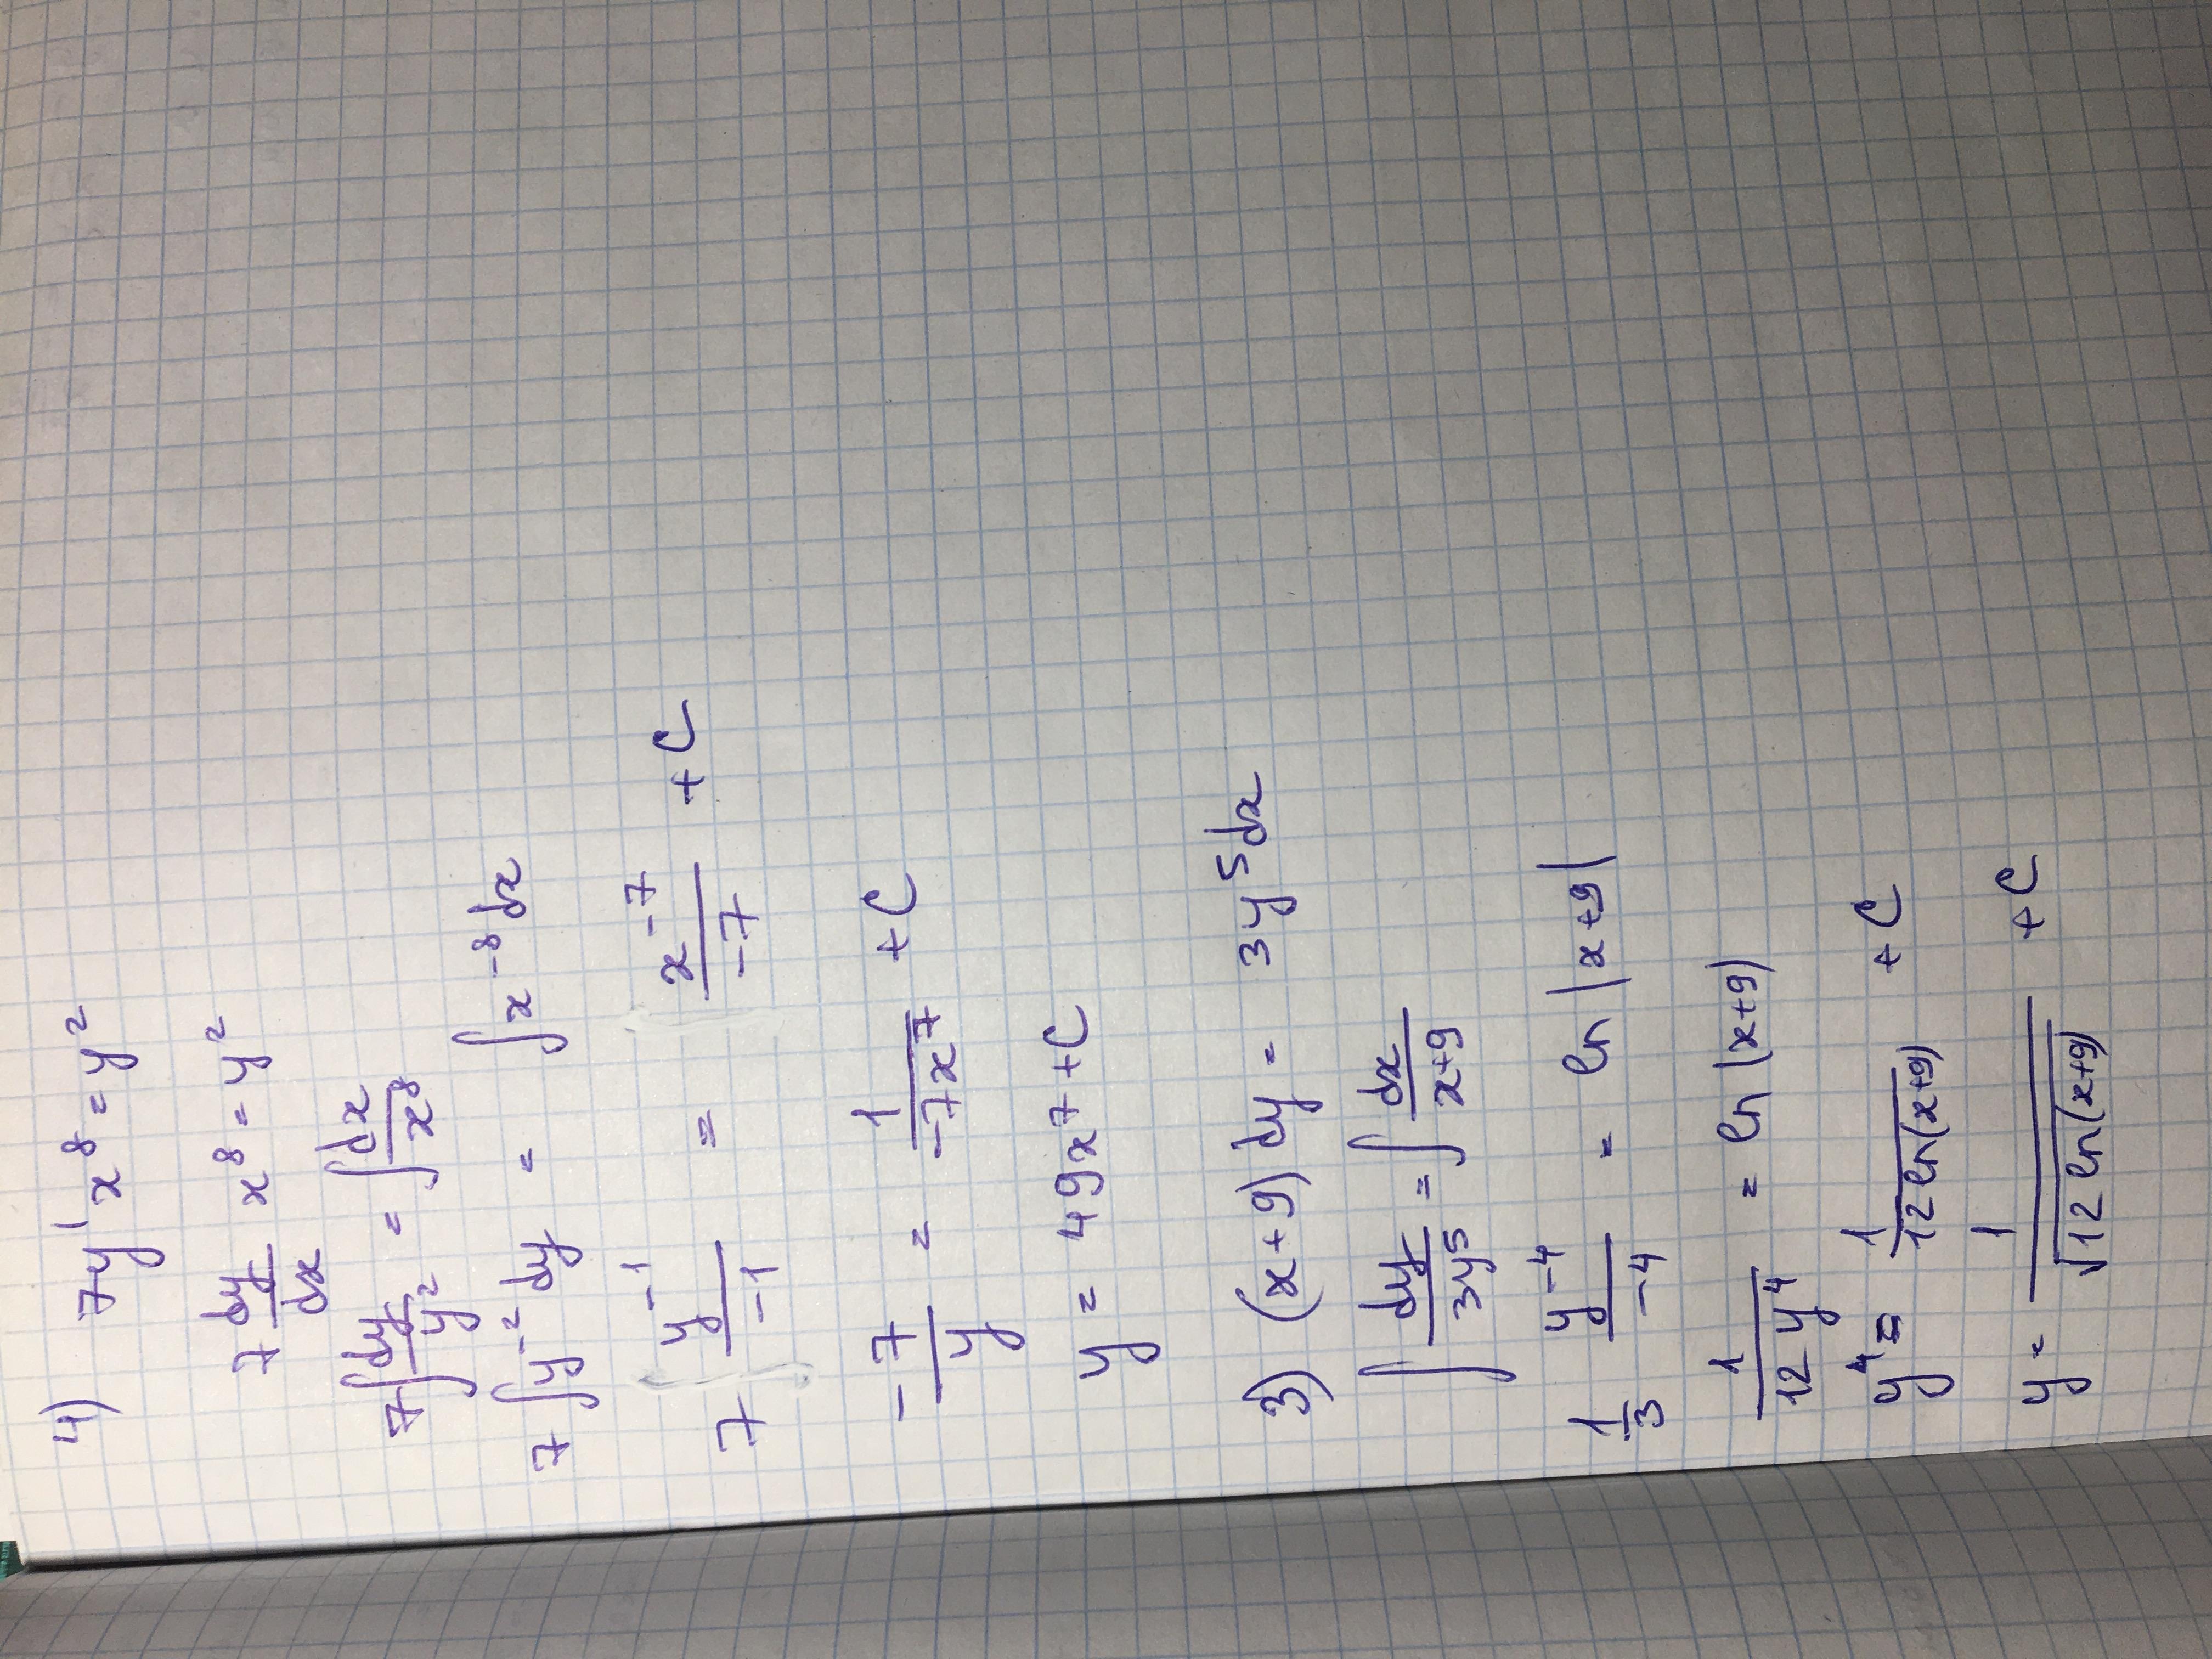 4) 7y' x⁸ = y²
7 dy/dx x⁸ = y²
7∫dy/y² = ∫dx/x⁸
7∫y⁻² dy = ∫x⁻⁸ dx
7 y⁻¹/-1 = x⁻⁷/-7 + C
-7/y = 1/-7x⁷ + C
y = 49x⁷ + C
3) (x+9) dy = 3y⁵dx
∫dy/3y⁵ = ∫dx/x+9
1/3 y⁻⁴/-4 = ln |x+9|
1/12y⁴ = ln |x+9)
y⁴ = 1/12 ln(x+9) + C
y = 1/√12 ln(x+9) + C